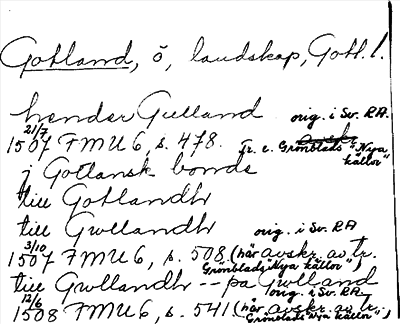 Gotland, ö, landskap, Gotl. l.
hender Gutland orig. i Sv. RA.
21/7 1507 FMU 6, s. 478. tr. e. Grönblads "Nya källor"
j Gotlansk bonde
till Gotlandh
till Gwllandh orig. i Sv. RA
3/10 1507 FMU 6, s. 508 (här avskr. av tr. Grönblads Nya källor",
till Gwllandh -- på Gwlland
12/6 1508 FMU 6, s. 541 (här avskr. av tr. orig. i Sv. RA
Grönblads "Nya källor",